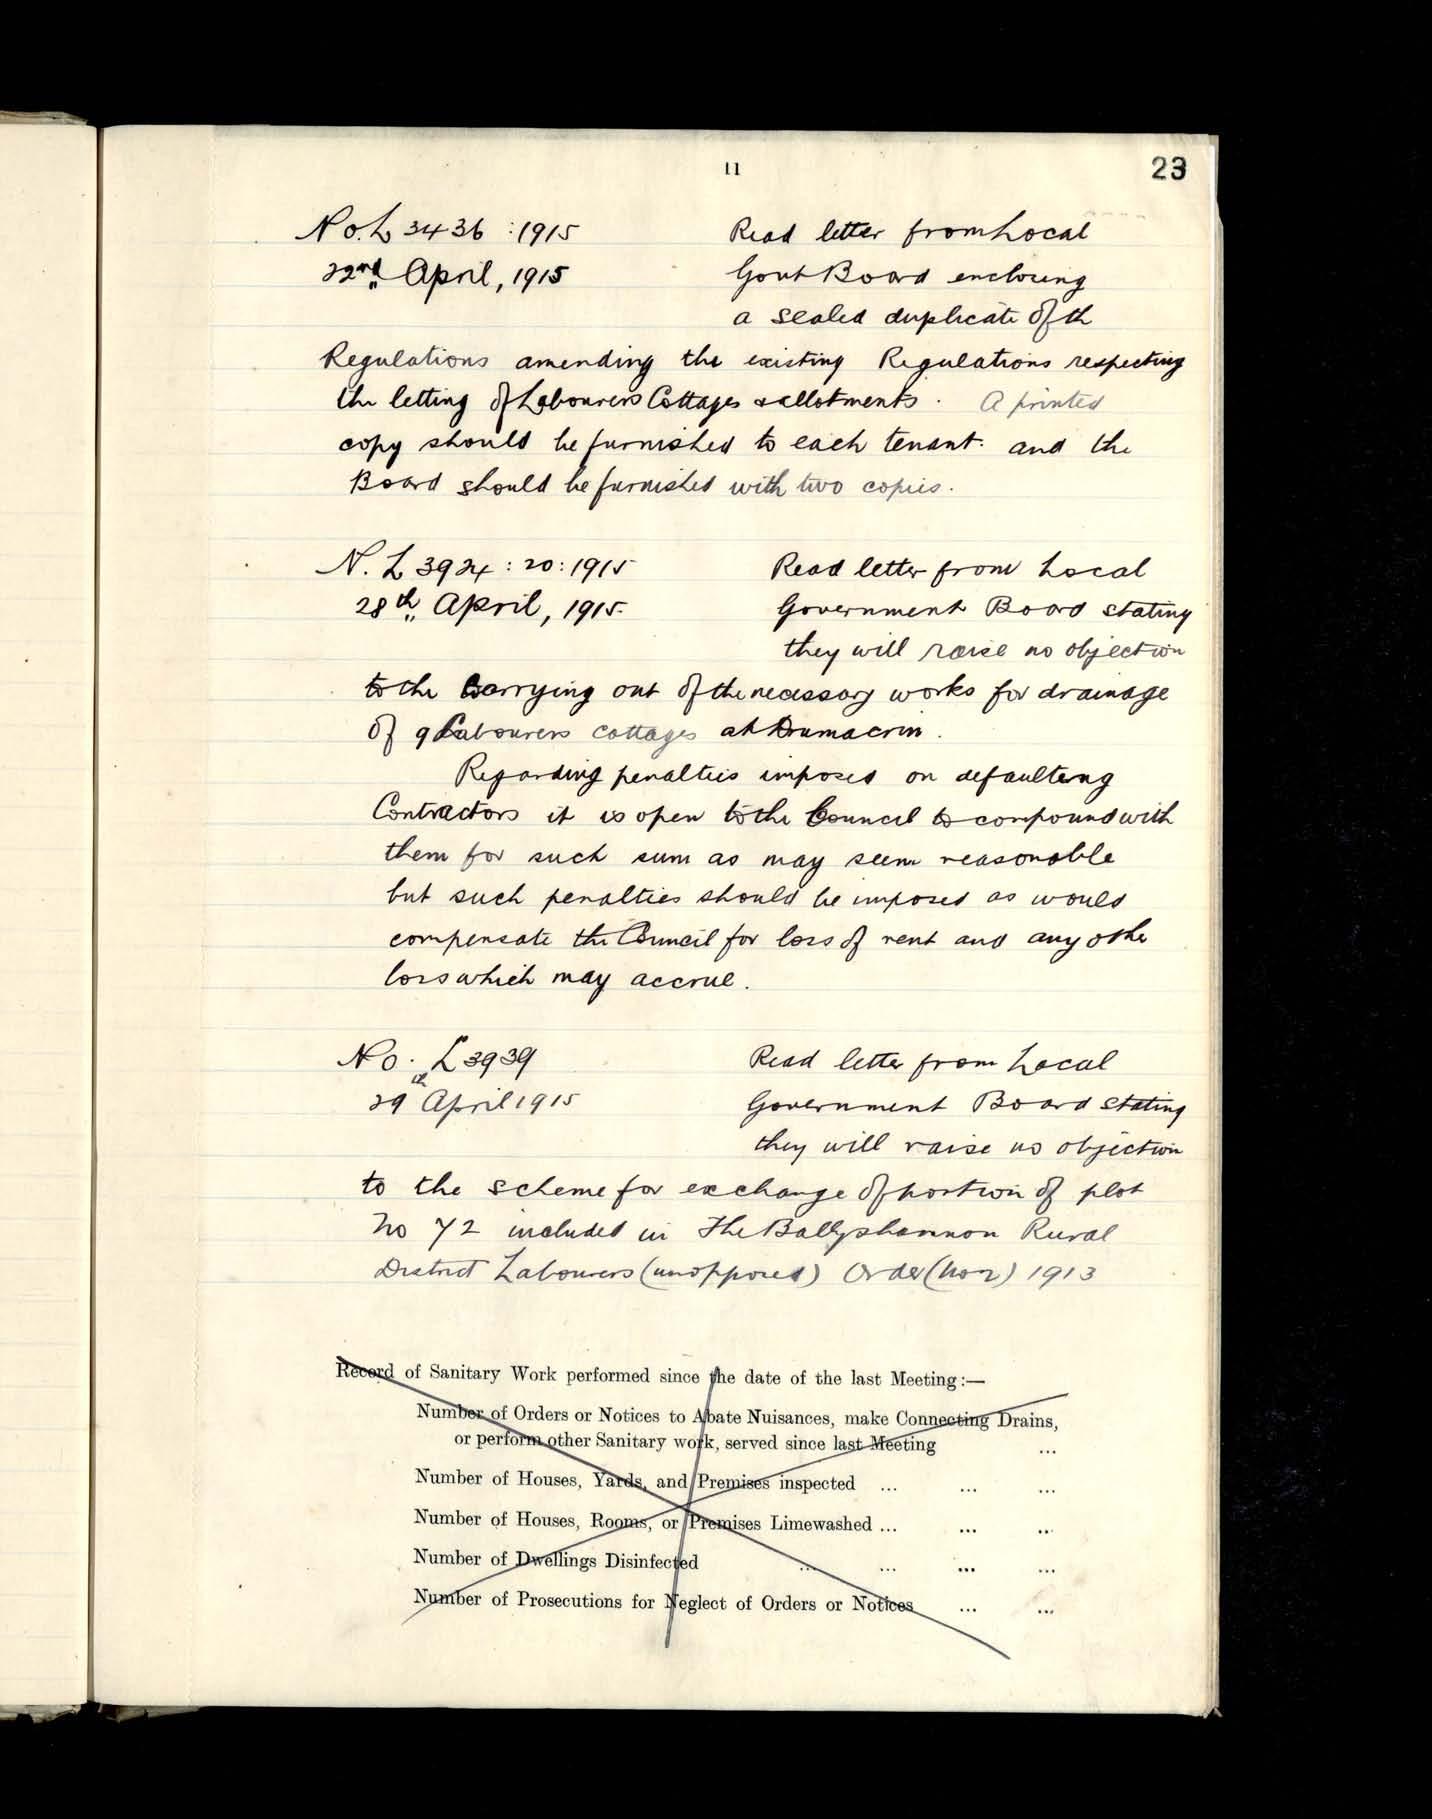 11
23
No. L 3436 : 1915
Read letter from Local
22nd April, 1915
Govt Board enclosing
a sealed duplicate of th
Regulations amending the existing Regulations respecting
the letting of Labourers Cottages & allotments. A printed
copy should be furnished to each tenant. and the
Board should be furnished with two copies.
N. L 3924 : 20 : 1915
Read letter from Local
28th April, 1915.
Government Board stating
they will raise no objection
to the Carrying out of the necessary works for drainage
of 9 Labourers cottages at Drumacrin.
Regarding penalties imposed on defaulting
Contractors it is open to the Council to compound with
them for such sum as may seem reasonable
but such penalties should be imposed as would
compensate the Council for loss of rent and any othe
loss which may accrue.
No. L 3939
Read letter from Local
29th April 1915
Government Board stating
they will raise no objection
to the scheme for exchange of portion of plot
No 72 included in The Ballyshannon Rural
District Labourers (unopposed) Order (No 2) 1913
Record of Sanitary Work performed since the date of the last Meeting:—
Number of Orders or Notices to Abate Nuisances, make Connecting Drains,
or perform other Sanitary work, served since last Meeting ...
Number of Houses, Yards, and Premises inspected ... ... ...
Number of Houses, Rooms, or Premises Limewashed ... ... ...
Number of Dwellings Disinfected ... ... ... ...
Number of Prosecutions for Neglect of Orders or Notices ... ...